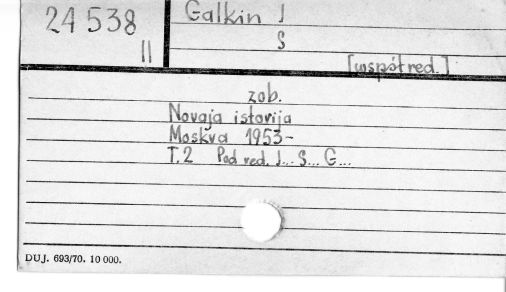 24538
II
Galkin I
S
[współred.]
zob.
Novaja istorija
Moskva 1953-
T.2 Pod red. I... S... G...
DUJ. 693/70. 10 000.